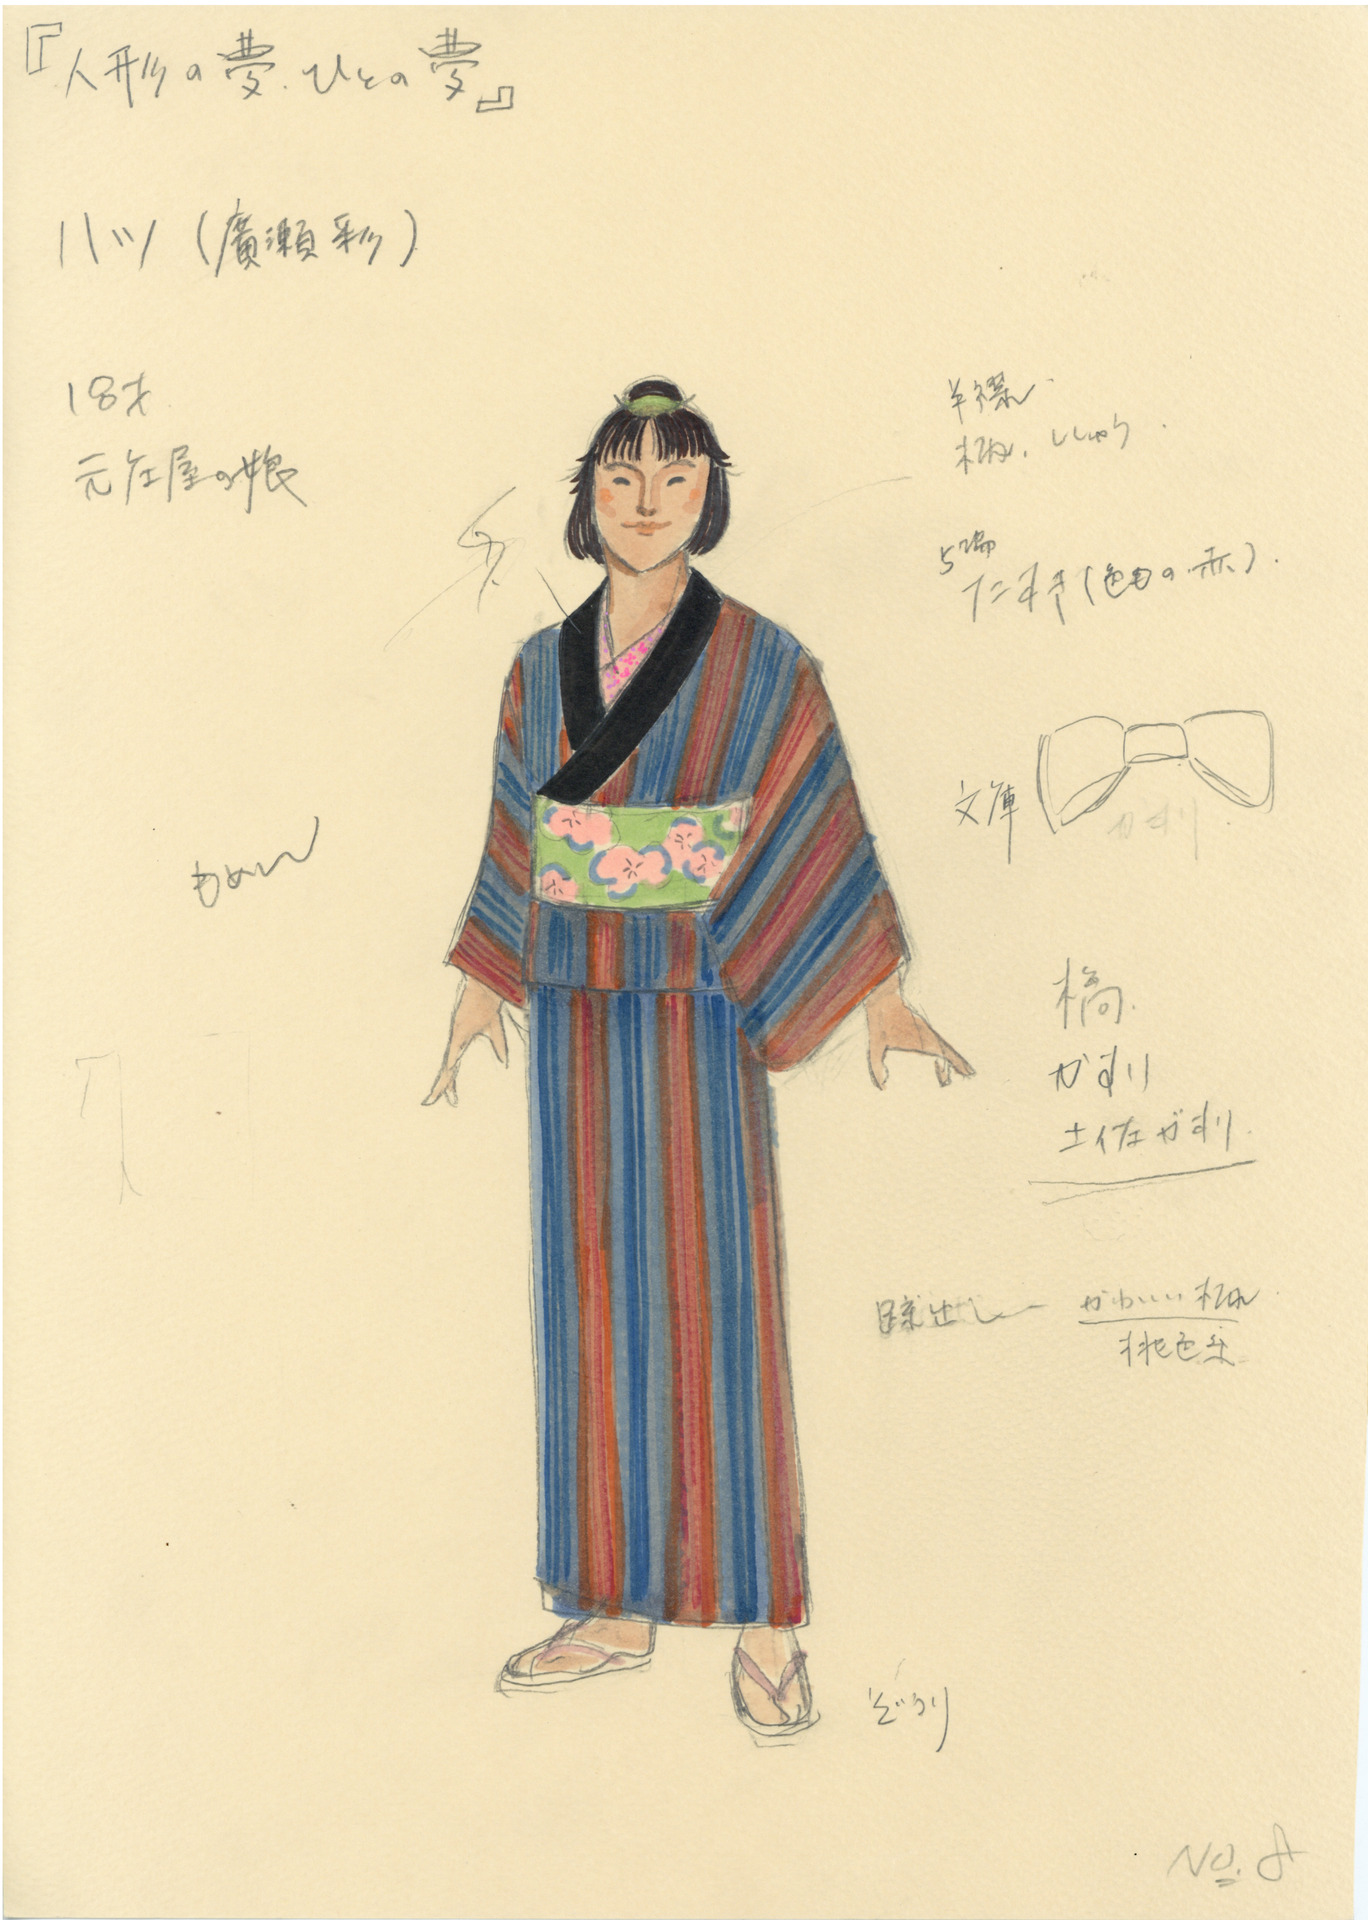 『人形の夢・ひとの夢』
ハツ (廣瀬彩)
18才
元庄屋の娘
半襟
柄、ししゅう
5場
たすき(色もの 赤)
文庫
かすり
もめん
縞
かすり
土佐がすり
かわいい柄
桃色系
ぞうり
No. 8